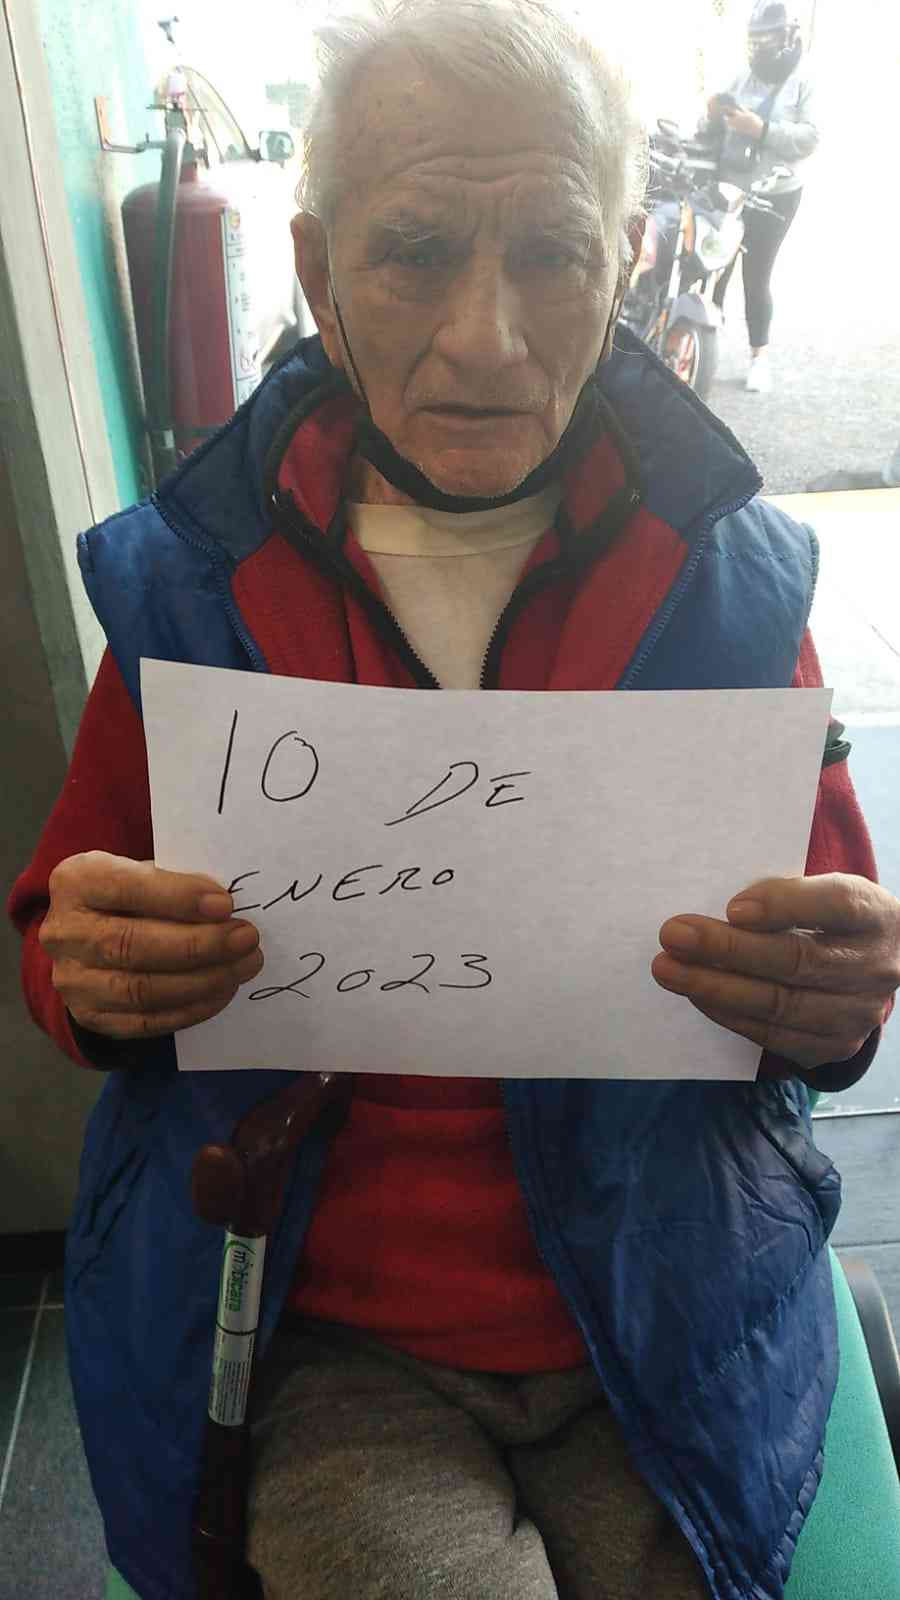 10 DE
ENERO
2023